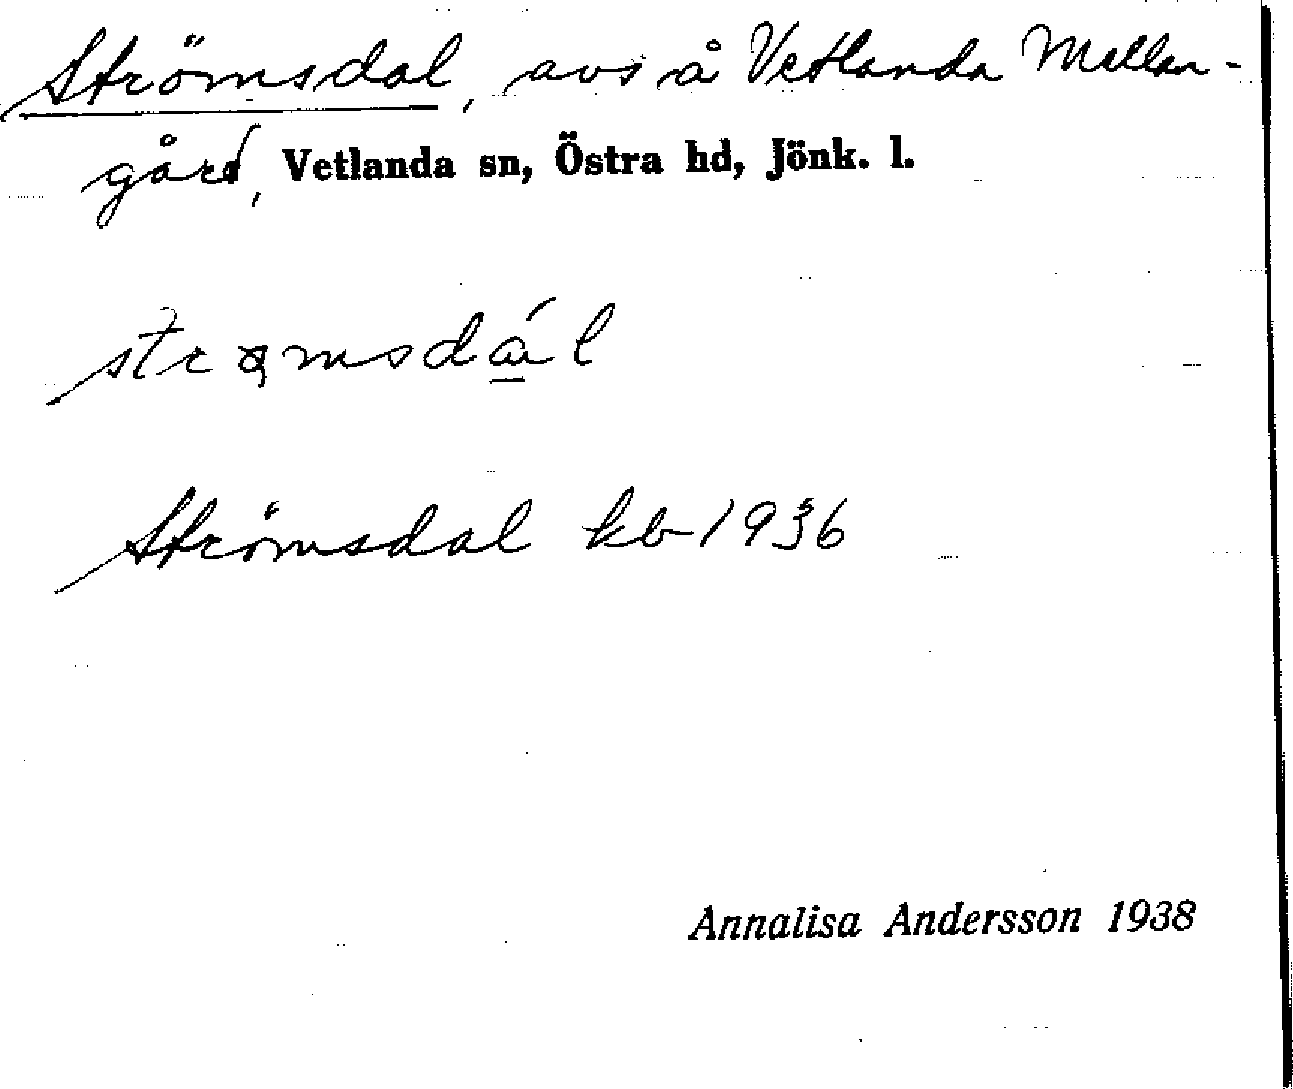 Strömsdal, avs å Vetlanda Mellan-
gård, Vetlanda sn, Östra hd, Jönk. l.
Strömsdal kb 1936
Annalisa Andersson 1938